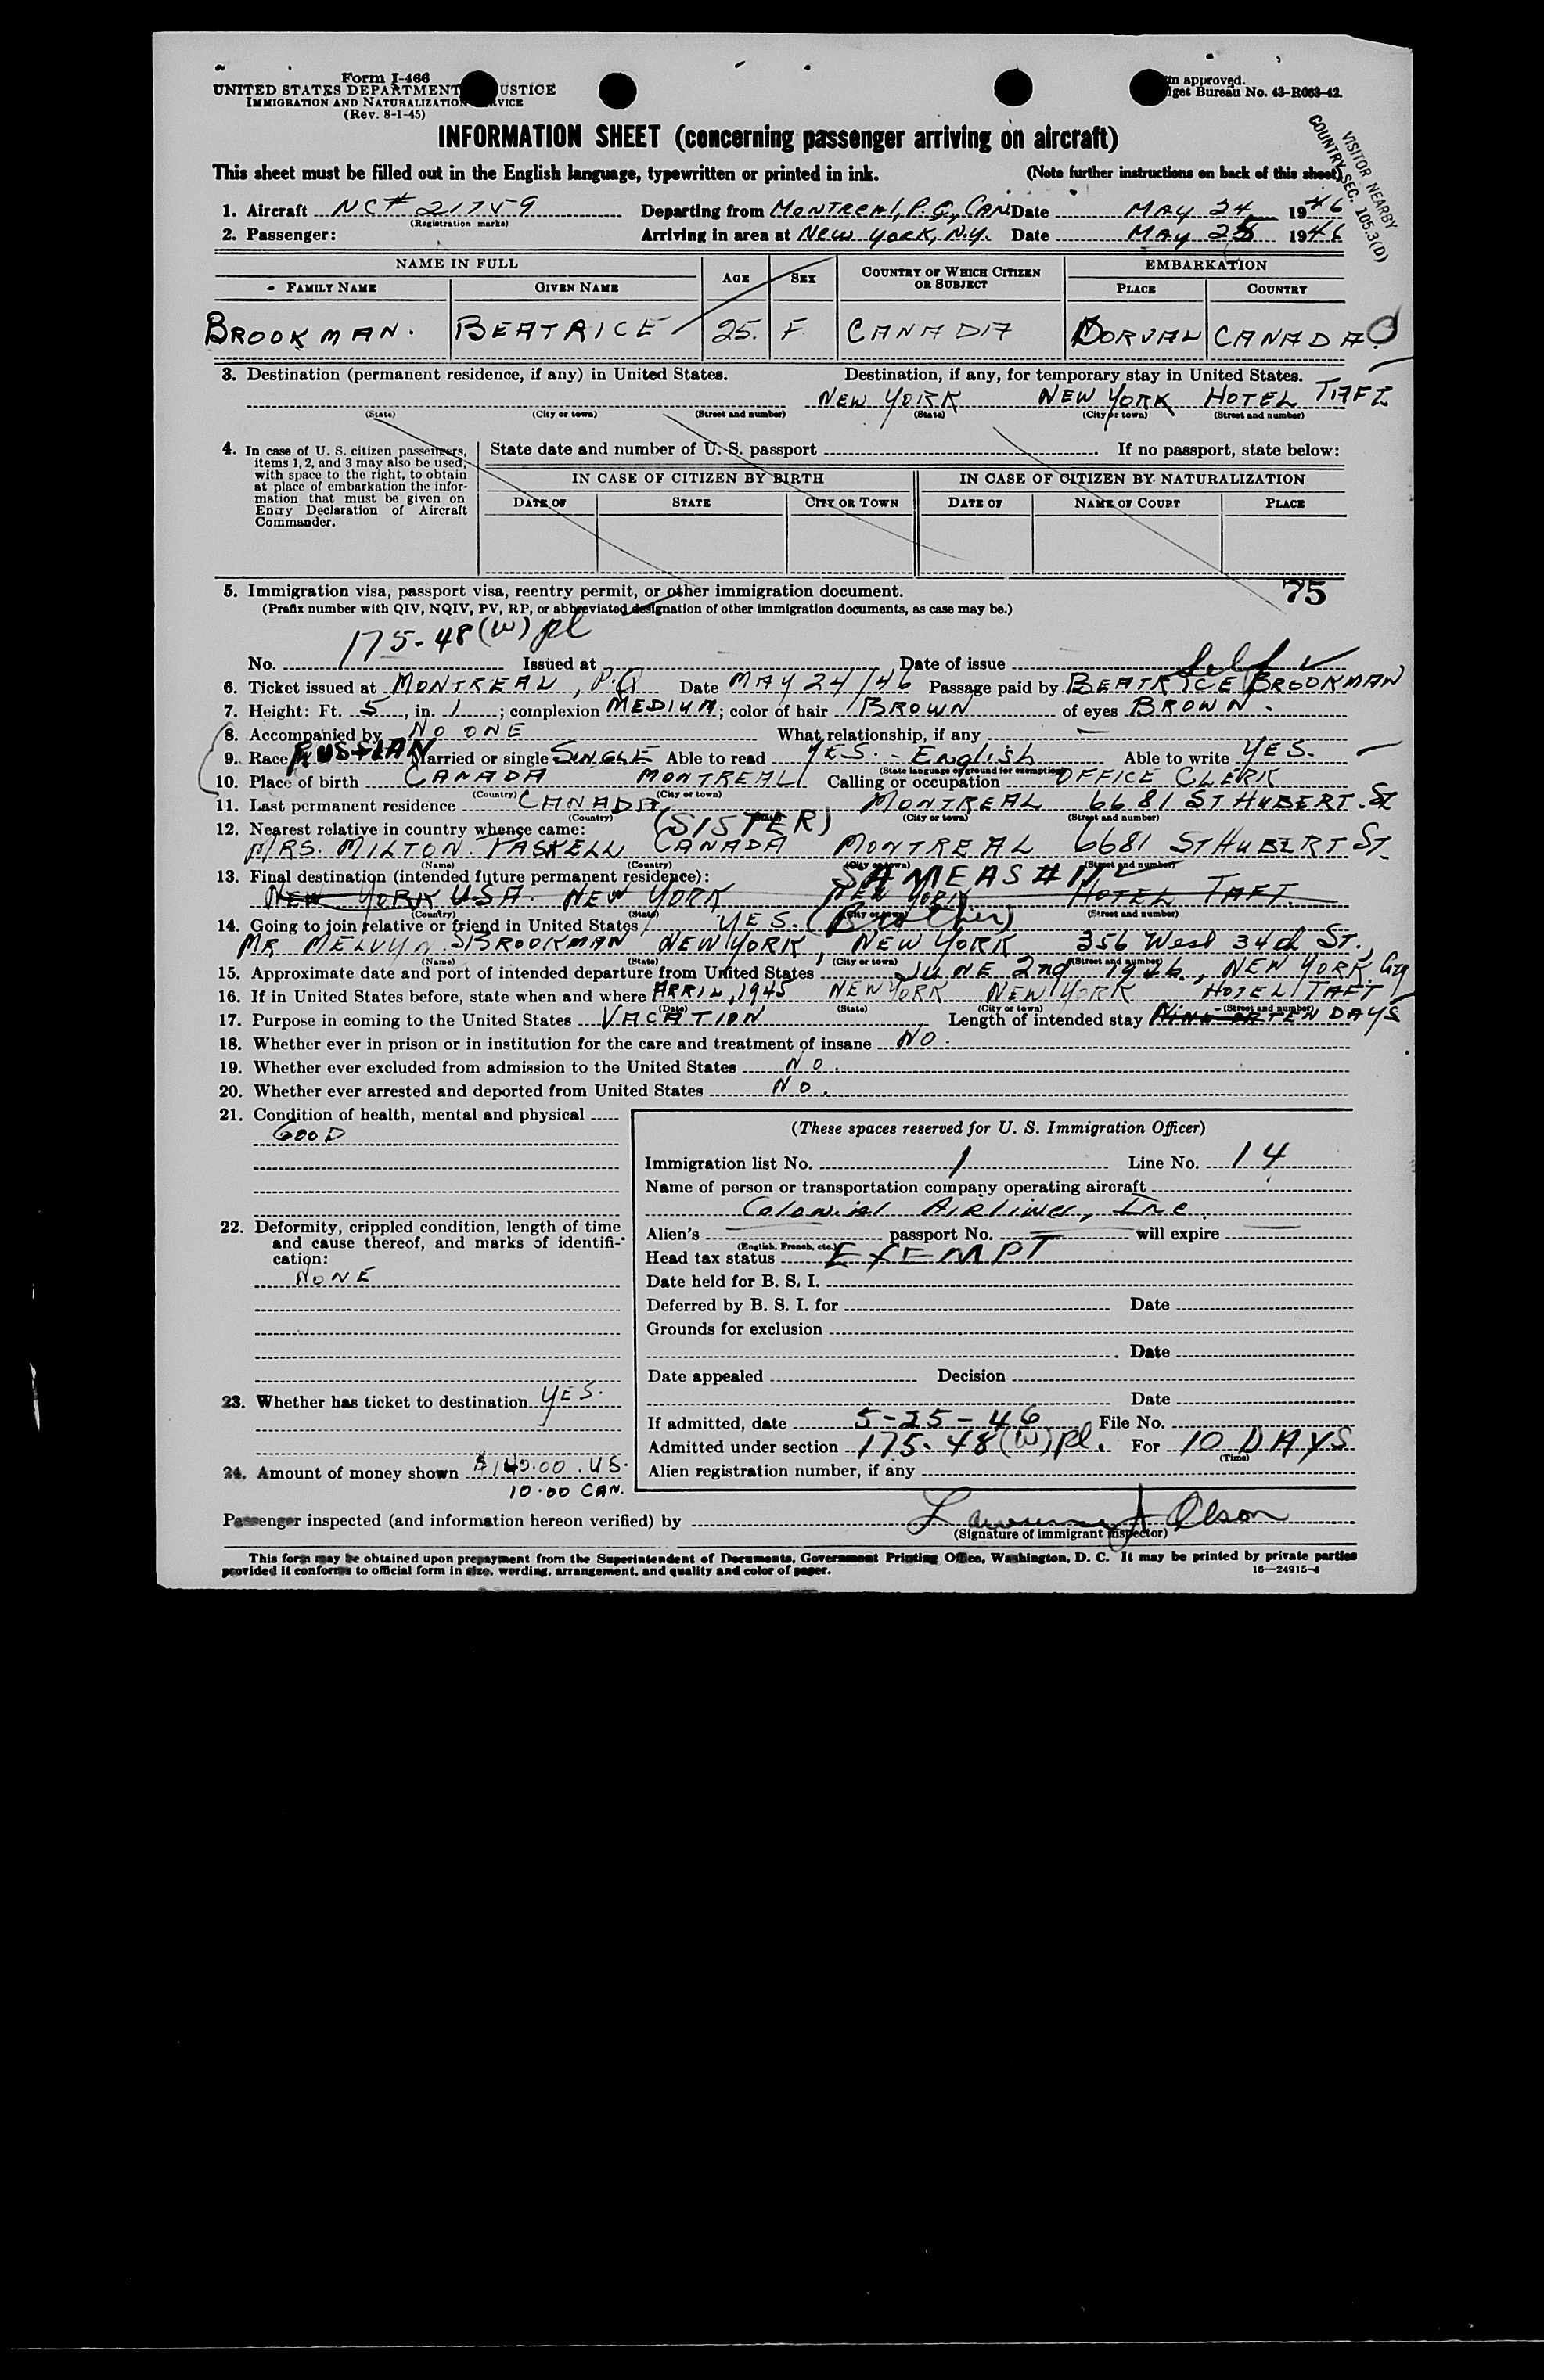 Form I-466
UNITED STATES DEPARTMENT USTICE
IMMIGRATION AND NATURALIZATION VICE
(Rev. 8-1-45)
m approved.
get Bureau No. 43-R063-42.
INFORMATION SHEET (concerning passenger arriving on aircraft)
VISITOR NEARBY
COUNTRY SEC. 105.3(D)
This sheet must be filled out in the English language, typewritten or printed in ink. (Note further instructions on back of this sheet)
1. Aircraft NC# 21759 Departing from MONTREAL, P.Q., CAN Date MAY 24 1946
(Registration marks)
2. Passenger: Arriving in area at NEW YORK, N.Y. Date MAY 25 1946
NAME IN FULL AGE SEX COUNTRY OF WHICH CITIZEN OR SUBJECT EMBARKATION
FAMILY NAME GIVEN NAME PLACE COUNTRY
BROOKMAN. BEATRICE 25. F. CANADIA DORVAL CANADA.
3. Destination (permanent residence, if any) in United States. Destination, if any, for temporary stay in United States.
NEW YORK NEW YORK HOTEL TAFT
(State) (City or town) (Street and number) (State) (City or town) (Street and number)
4. In case of U. S. citizen passengers, items 1, 2, and 3 may also be used, with space to the right, to obtain at place of embarkation the information that must be given on Entry Declaration of Aircraft Commander.
State date and number of U. S. passport If no passport, state below:
IN CASE OF CITIZEN BY BIRTH IN CASE OF CITIZEN BY NATURALIZATION
DATE OF STATE CITY OR TOWN DATE OF NAME OF COURT PLACE
75
5. Immigration visa, passport visa, reentry permit, or other immigration document.
(Prefix number with QIV, NQIV, PV, RP, or abbreviated designation of other immigration documents, as case may be.)
175-48(W) pl
No. Issued at Date of issue
Self
6. Ticket issued at MONTREAL, P.Q Date MAY 24/46 Passage paid by BEATRICE BROOKMAN
7. Height: Ft. 5, in. 1; complexion MEDIUM; color of hair BROWN of eyes BROWN.
8. Accompanied by NO ONE What relationship, if any —
9. Race RUSSIAN Married or single SINGLE Able to read YES. - English Able to write YES.
(State language or ground for exemption)
10. Place of birth CANADA MONTREAL Calling or occupation OFFICE CLERK
(Country) (City or town)
11. Last permanent residence CANADA MONTREAL 6681 ST HUBERT. St
(Country) (City or town) (Street and number)
12. Nearest relative in country whence came: (SISTER)
MRS. MILTON. TASKELL CANADA MONTREAL 6681 ST HUBERT ST.
(Name) (Country) (City or town) (Street and number)
13. Final destination (intended future permanent residence): SAME AS # 11
NEW YORK USA. NEW YORK NEW YORK HOTEL TAFT.
(Country) (State) (City or town) (Street and number)
14. Going to join relative or friend in United States YES. (Brother)
MR MELVYN. BROOKMAN NEW YORK, NEW YORK 356 West 34th ST.,
(Name) (State) (City or town) (Street and number)
15. Approximate date and port of intended departure from United States JUNE 2nd 1946., NEW YORK City
16. If in United States before, state when and where APRIL, 1945 NEW YORK NEW YORK HOTEL TAFT
(Date) (State) (City or town) (Street and number)
17. Purpose in coming to the United States VACATION Length of intended stay NINE OR TEN DAYS
18. Whether ever in prison or in institution for the care and treatment of insane NO.
19. Whether ever excluded from admission to the United States NO.
20. Whether ever arrested and deported from United States NO.
21. Condition of health, mental and physical
GOOD
22. Deformity, crippled condition, length of time and cause thereof, and marks of identification:
NONE
23. Whether has ticket to destination YES.
24. Amount of money shown $140.00. US.
10.00 CAN.
(These spaces reserved for U. S. Immigration Officer)
Immigration list No. 1 Line No. 14
Name of person or transportation company operating aircraft
Colonial Airlines, Inc.
Alien's passport No. will expire
(English, French, etc.)
Head tax status EXEMPT
Date held for B. S. I.
Deferred by B. S. I. for Date
Grounds for exclusion
Date
Date appealed Decision
Date
If admitted, date 5-25-46 File No.
Admitted under section 175-48(W)pl. For 10 DAYS
(Time)
Alien registration number, if any
Passenger inspected (and information hereon verified) by Lawrence A Olson
(Signature of immigrant inspector)
This form may be obtained upon prepayment from the Superintendent of Documents, Government Printing Office, Washington, D. C. It may be printed by private parties
provided it conforms to official form in size, wording, arrangement, and quality and color of paper. 16—24915-4